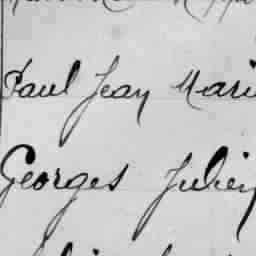 Paul Jean Mari
Georges Julien